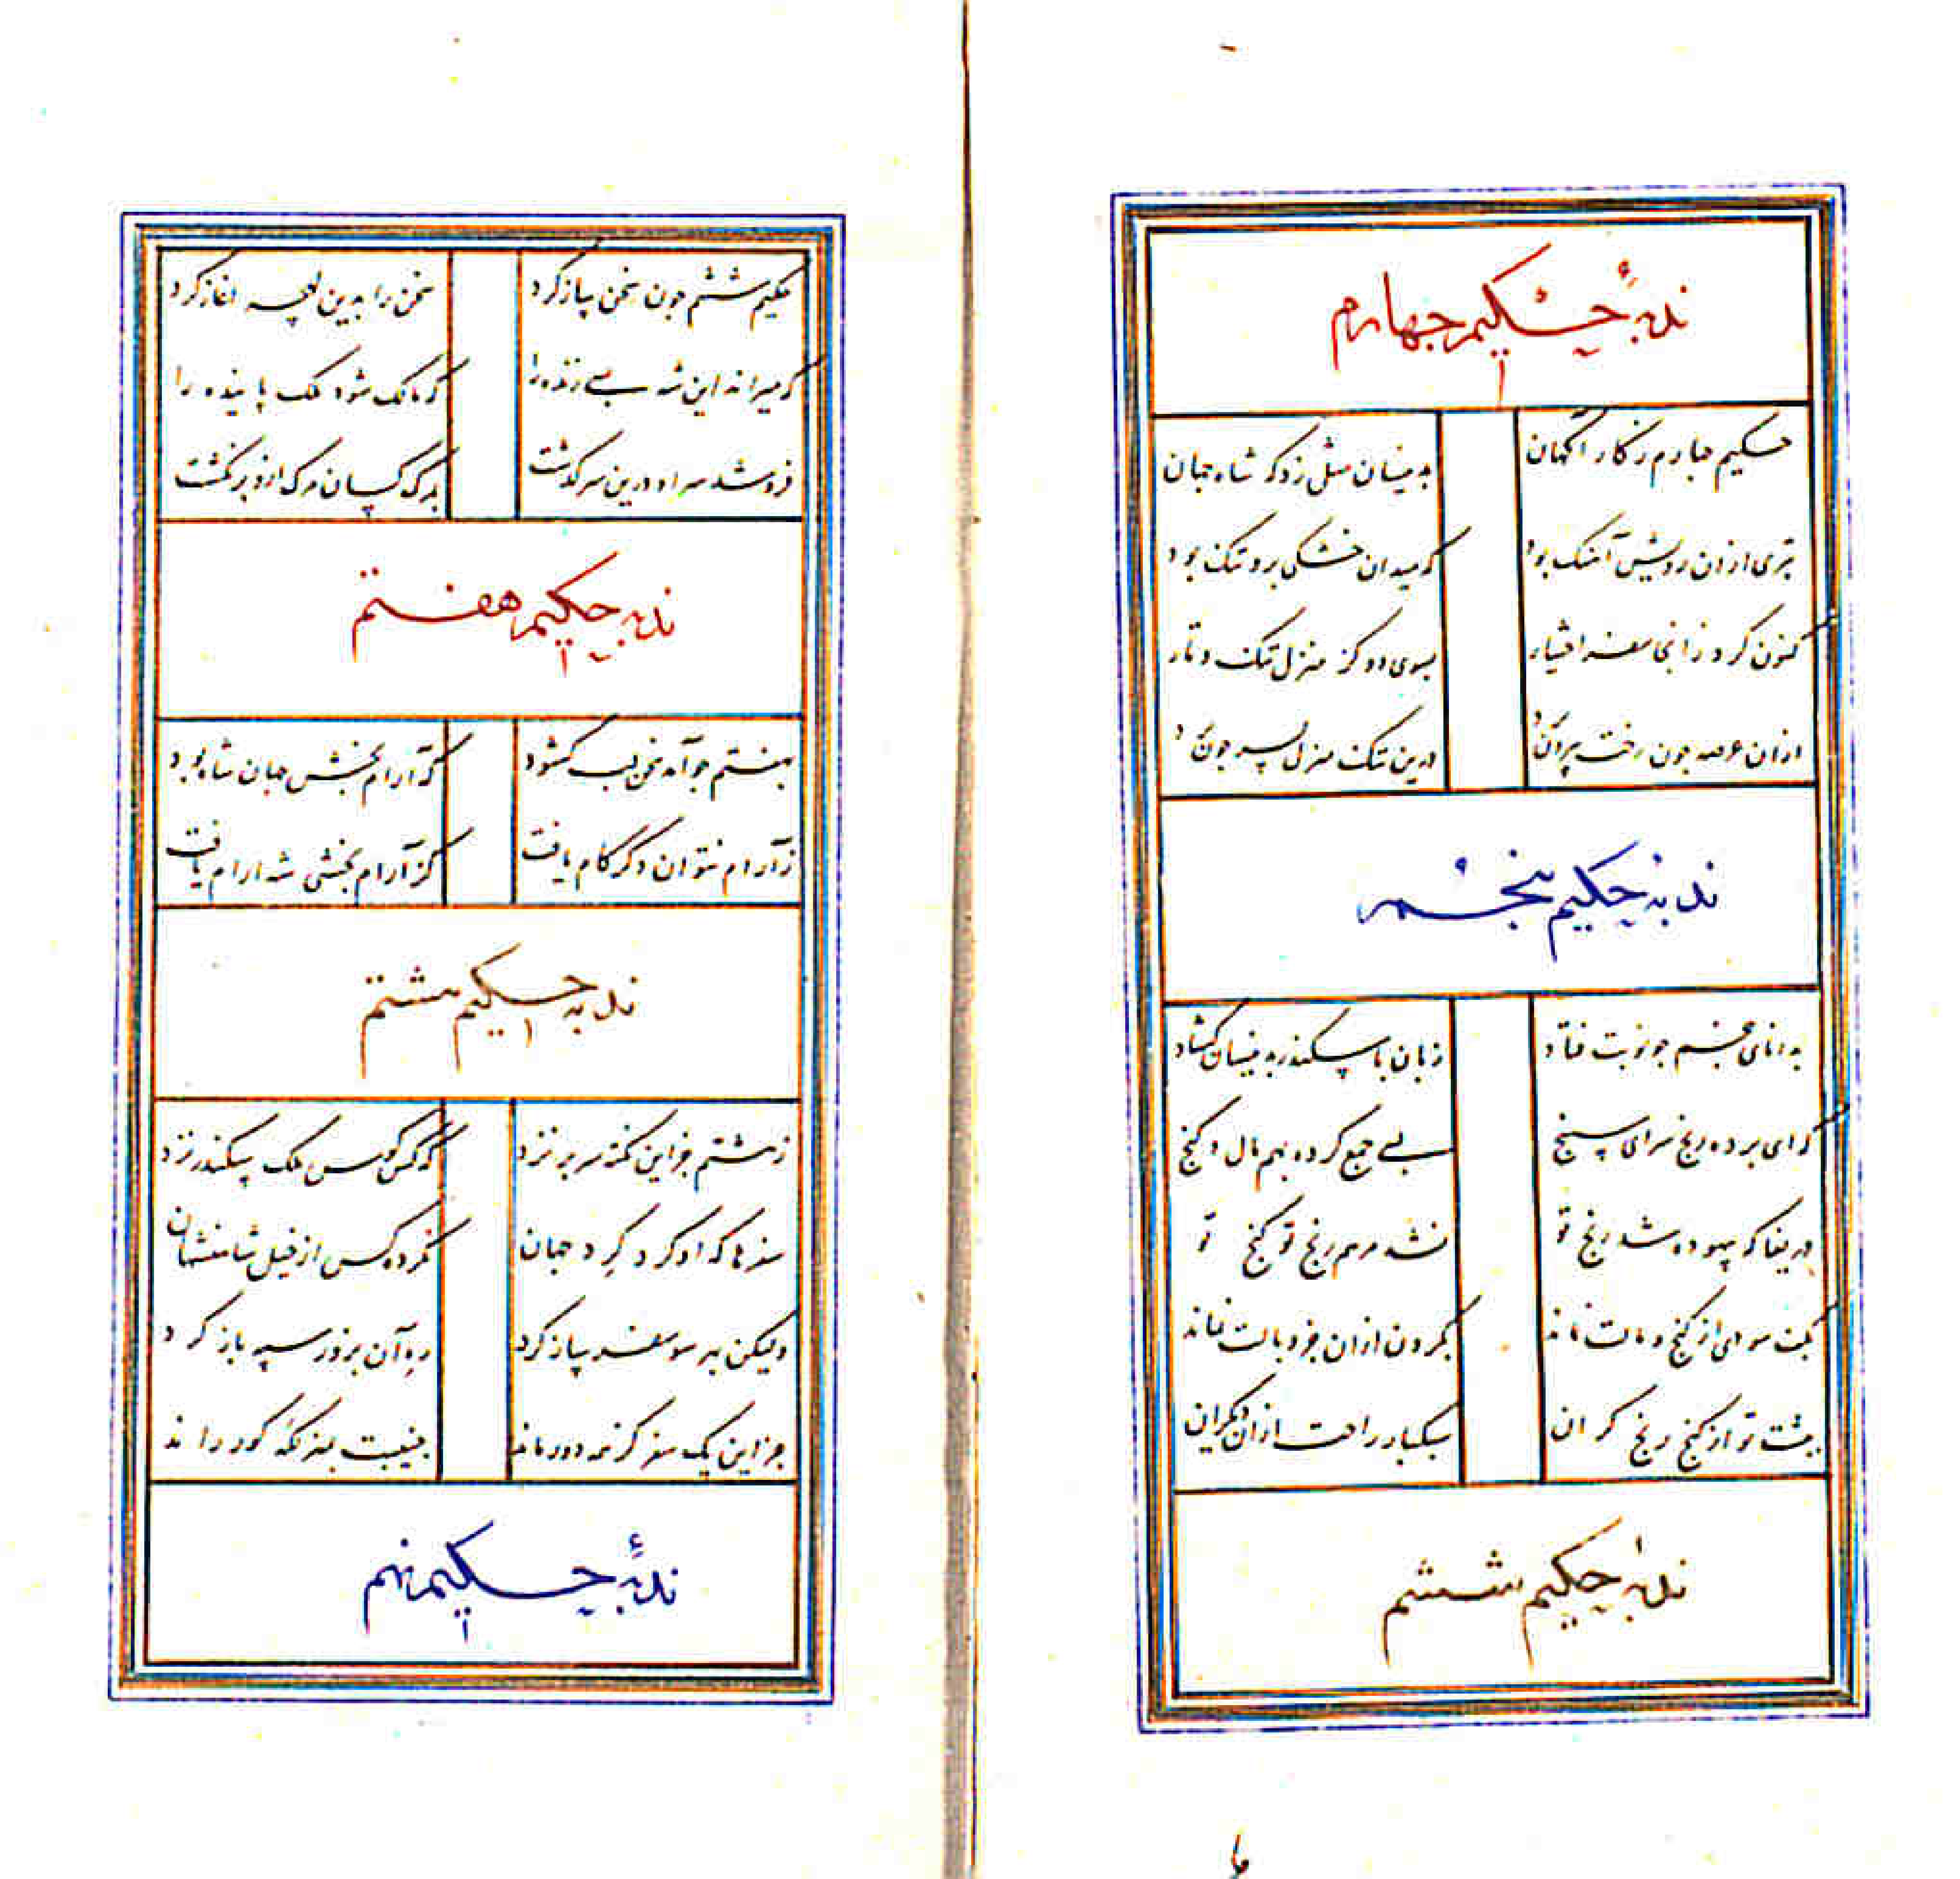 ندبهٔ حکیم چهارم
حکیم چهارم ز کار آگهان بدینسان مثل زد که شاه جهان
بتری ازان رویش آهنگ بود که میدان خشکی برو تنک بود
کنون کرد زانجا سفر اختیار بسوی دو کز منزل تنک و تار
ازان عرصه چون رخت بیرون درین تنک منزل بسر چون
ندبه حکیم پنجم
بدانای پنجم چو نوبت فتاد زبان با سکندر بدینسان کشاد
که ای برده رنج سرای سپنج بسے جمع کرده بهم مال و کنج
دریغا که بیهوده شد رنج تو نشد مرهم رنج تو کنج تو
بکف سودی از کنج و مالت نماند بکردن ازان جز وبالت نماند
پشت تو از کنج رنج کران سبکبار راحت ازان دیکران
ندبه حکیم ششم
حکیم ششم چون سخن ساز کرد سخن را بدین لهجه اغاز کرد
که میراند این شه بسے زنده را که مالک شود ملک پاینده را
فرو شد سر او درین سرکذشت بمرک کسان مرک ازو برنکشت
ندبه حکیم هفتم
بهفتم چو آمد سخن لب کشود که آرام بخش جهان شاه بود
ز آرام نتوان دکر کام یافت کز آرام بخشی شه ارام یافت
ندبه حکیم هشتم
ز هشتم جز این نکته سر بر نزد که کس کوس ملک سکندر نزد
سفرها که او کرد کرد جهان نکرده کس از خیل شاهنشهان
ولیکن بهر سو سفر ساز کرد ره آن بروز سیه باز کرد
جز این یک سفر کز همه دور ماند بغیبت بمنزلکه کور راند
ندبهٔ حکیم نهم